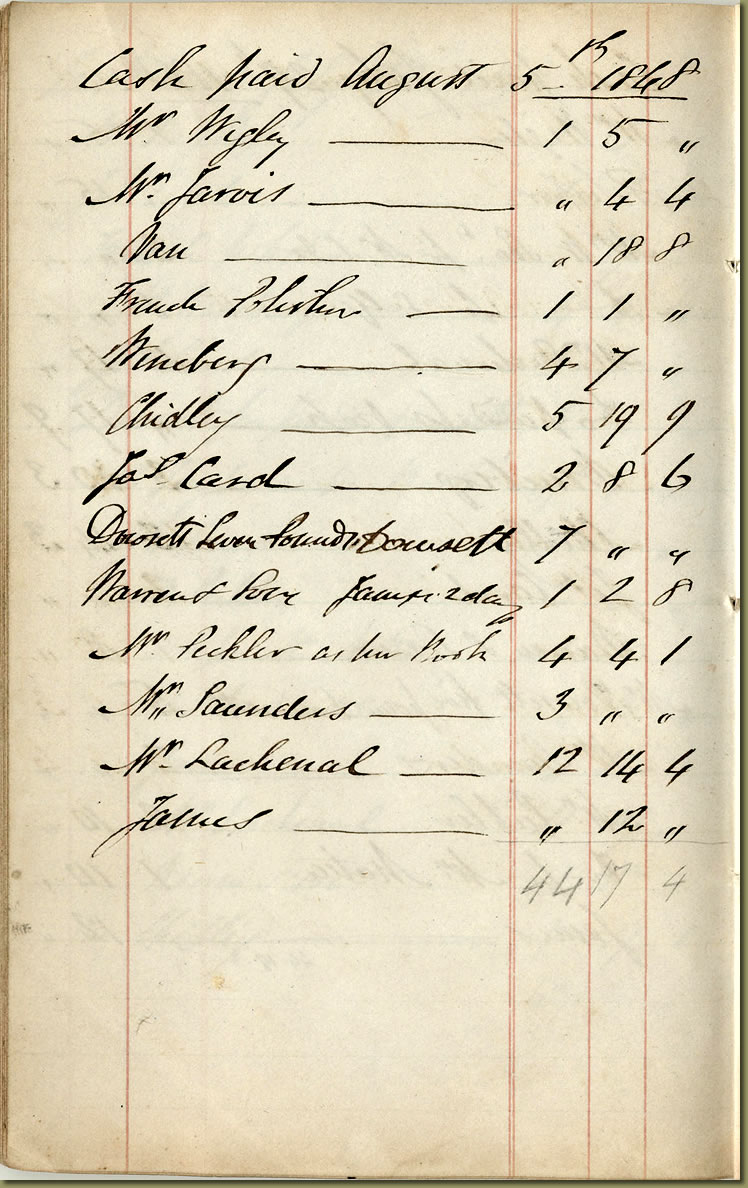 Cash paid August 5th 1868
Mr Wigley 1 5 "
Mr Jarvis " 4 4
Van " 18 8
French Polisher 1 1 "
Wineberg 4 7 "
Chidley 5 19 9
Jas Card 2 8 6
Dowsett Seven Pounds Dowsett 7 " "
Warren & Son James 2 day 1 2 8
Mr Peckler as per Book 4 4 1
Mr Saunders 3 " "
Mr Lachenal 12 14 4
James " 12 "
44 17 4